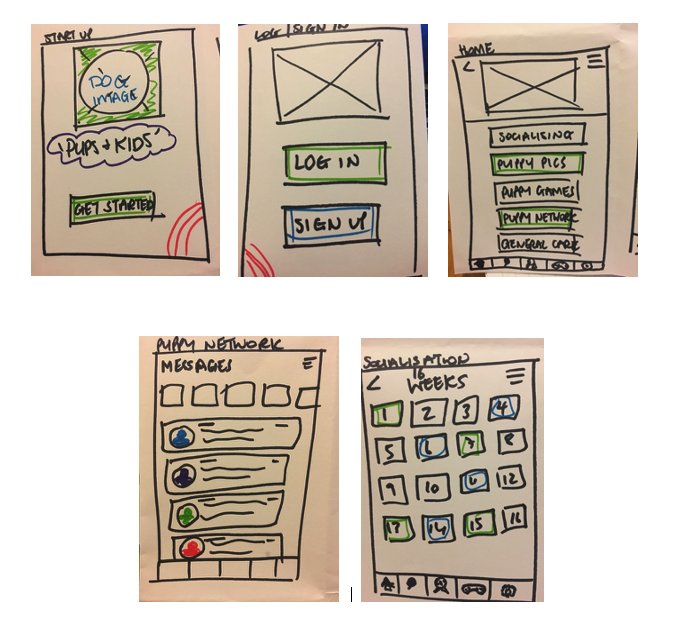 START UP
DOG
IMAGE
'PUPS + KIDS'
GET STARTED
LOG / SIGN IN
LOG IN
SIGN UP
HOME
SOCIALISING
PUPPY PICS
PUPPY GAMES
PUPPY NETWORK
GENERAL CARE
PUPPY NETWORK
MESSAGES
SOCIALISATION
16
WEEKS
1 2 3 4
5 6 7 8
9 10 11 12
13 14 15 16